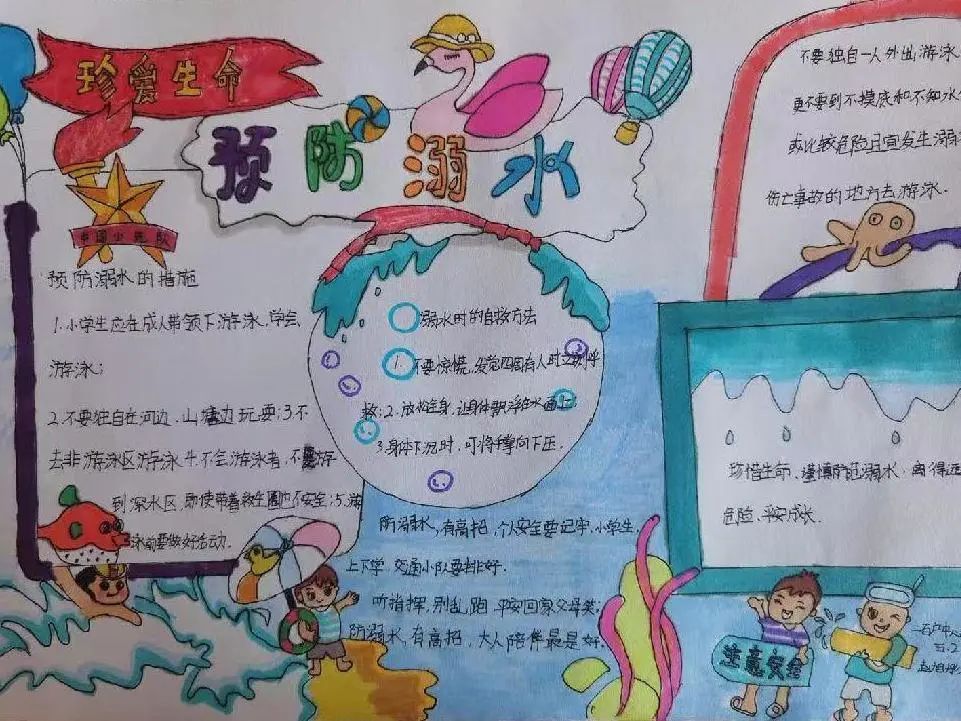 珍爱生命
预防溺水
中国少先队
预防溺水的措施
1.小学生应在成人带领下游泳,学会
游泳;
2.不要独自在河边、山塘边玩耍;3不
去非游泳区游泳;4.不会游泳者,不要游
到深水区,即使带着救生圈也不安全;5.游
泳前要做好活动.
溺水时的自救方法
1.不要惊慌,发觉四周有人时立刻呼
救;2.放松全身,让身体飘浮在水面上
3.身体下沉时,可将手掌向下压.
防溺水,有高招,个人安全要记牢,小学生,
上下学,交通小队要排好.
听指挥,别乱跑 平安回家父母笑;
防溺水,有高招,大人陪伴最是好.
不要独自一人外出游泳
更不要到不摸底和不知水
或比较危险且宜发生溺
伤亡事故的地方去游泳.
珍惜生命、谨慎防范溺水、离得远
危险,平安成长.
注意安全